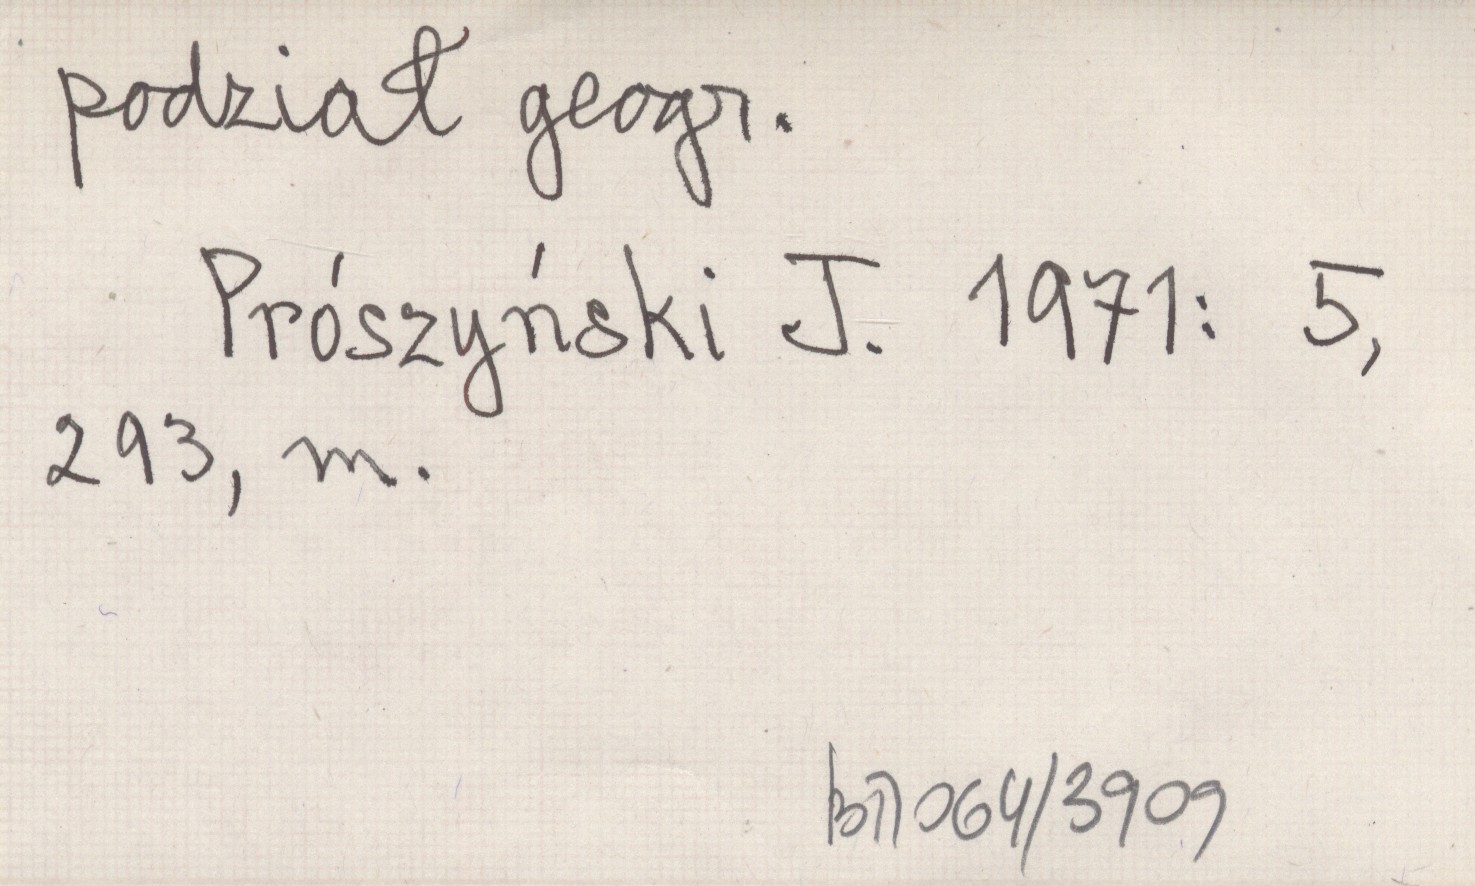 podział geogr.
Prószyński J. 1971: 5,
293, m.
bn064/3909